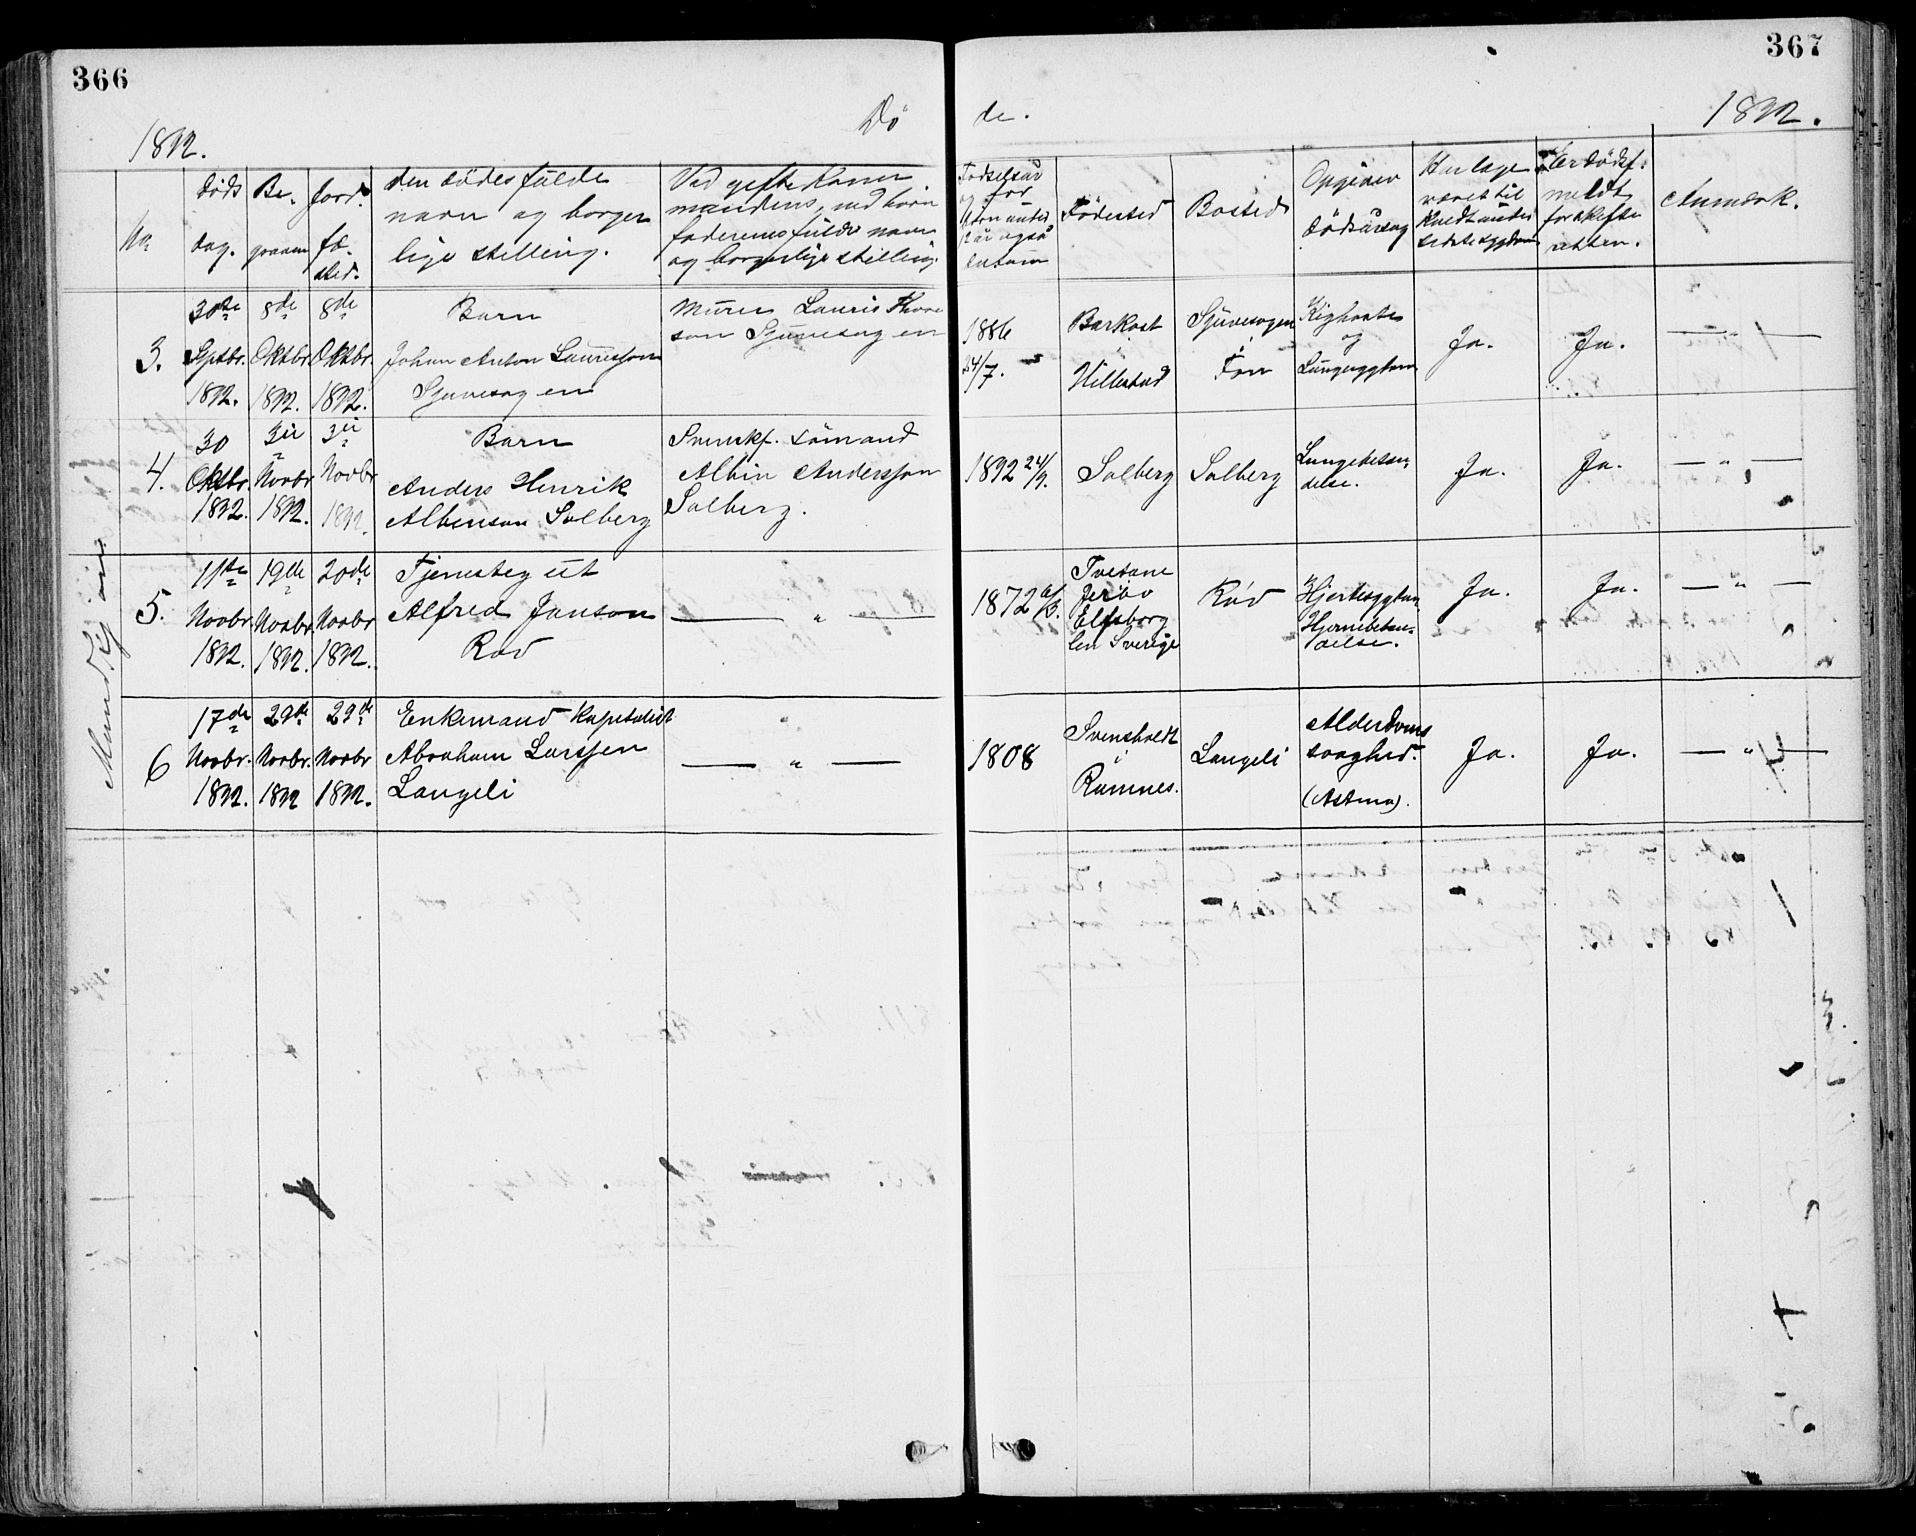 366
367
Dö
de.
1892.
1892.
No.
döds
dag.
Be-
graven
Jord-
fæ-
sted.
den dödes fulde
navn og borger
lige stilling.
Ved gifte Koner
mandens, ved börn
faderens fulde navn
og borgerlige stilling.
Födselsår
og for
börn under
12 år også
datum
Födested
Bosted
Opgiven
dödsårsag
Har læge
været til
Anmærk.
Er dödsf.
meldt
for skifte
retten.
3.
30te
Sptbr.
1892.
8de
Oktbr.
1892.
8de
Oktbr.
1892.
Barn
Johan Anton Laurissøn
Sjuvesogen
Murer Lauris Thore
søn Sjuvesogen
1886
24/7.
Barkost
Hillestad
Sjuvesogen
i
Fon
Kighoste
og
Lungesygdom
Ja.
Ja.
4.
30
Oktbr.
1892.
3die
Novbr
1892.
3die
Novbr
1892.
Barn
Anders Henrik
Albinson Solberg
Svenskf. sömand
Albin Andersson
Solberg.
1892 24/9.
Solberg
Solberg
Lungebetæn-
delse.
Ja.
Ja.
— " —
5.
11te
Novbr.
1892.
19de
Novbr.
1892.
20de
Novbr
1892.
Tjenestegut
Alfred Janson
Röd
— " —
1872 6/3.
Elfsborg
len Sverige
Röd
Hjertesygdom
Hjernebetæn-
delse.
Ja.
Ja.
— " —
6
17de
Novbr.
1892.
29de
Novbr.
1892
29de
Novbr
1892.
Enkemand Kapitalist
Abraham Larssen
Langeli
— " —
1808
Svensholdt
i
Ramnes.
Langeli
Alderdoms
svaghed.
(Astma).
Ja.
Ja.
— " —
Mandkjön